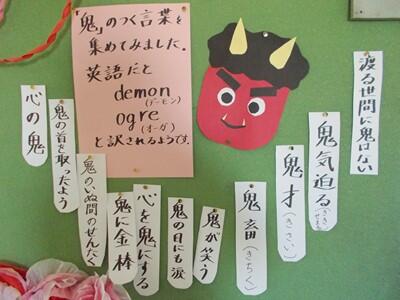 「鬼」のつく言葉を
集めてみました。
英語だと
demon
(デーモン)
ogre
(オーガ)
と訳されるようです。
渡る世間に鬼はない
鬼気迫る
(きき せまる)
鬼才(きさい)
鬼畜(きちく)
鬼が笑う
鬼の目にも涙
心を鬼にする
鬼に金棒
鬼のいぬ間のせんたく
鬼の首を取ったよう
心の鬼